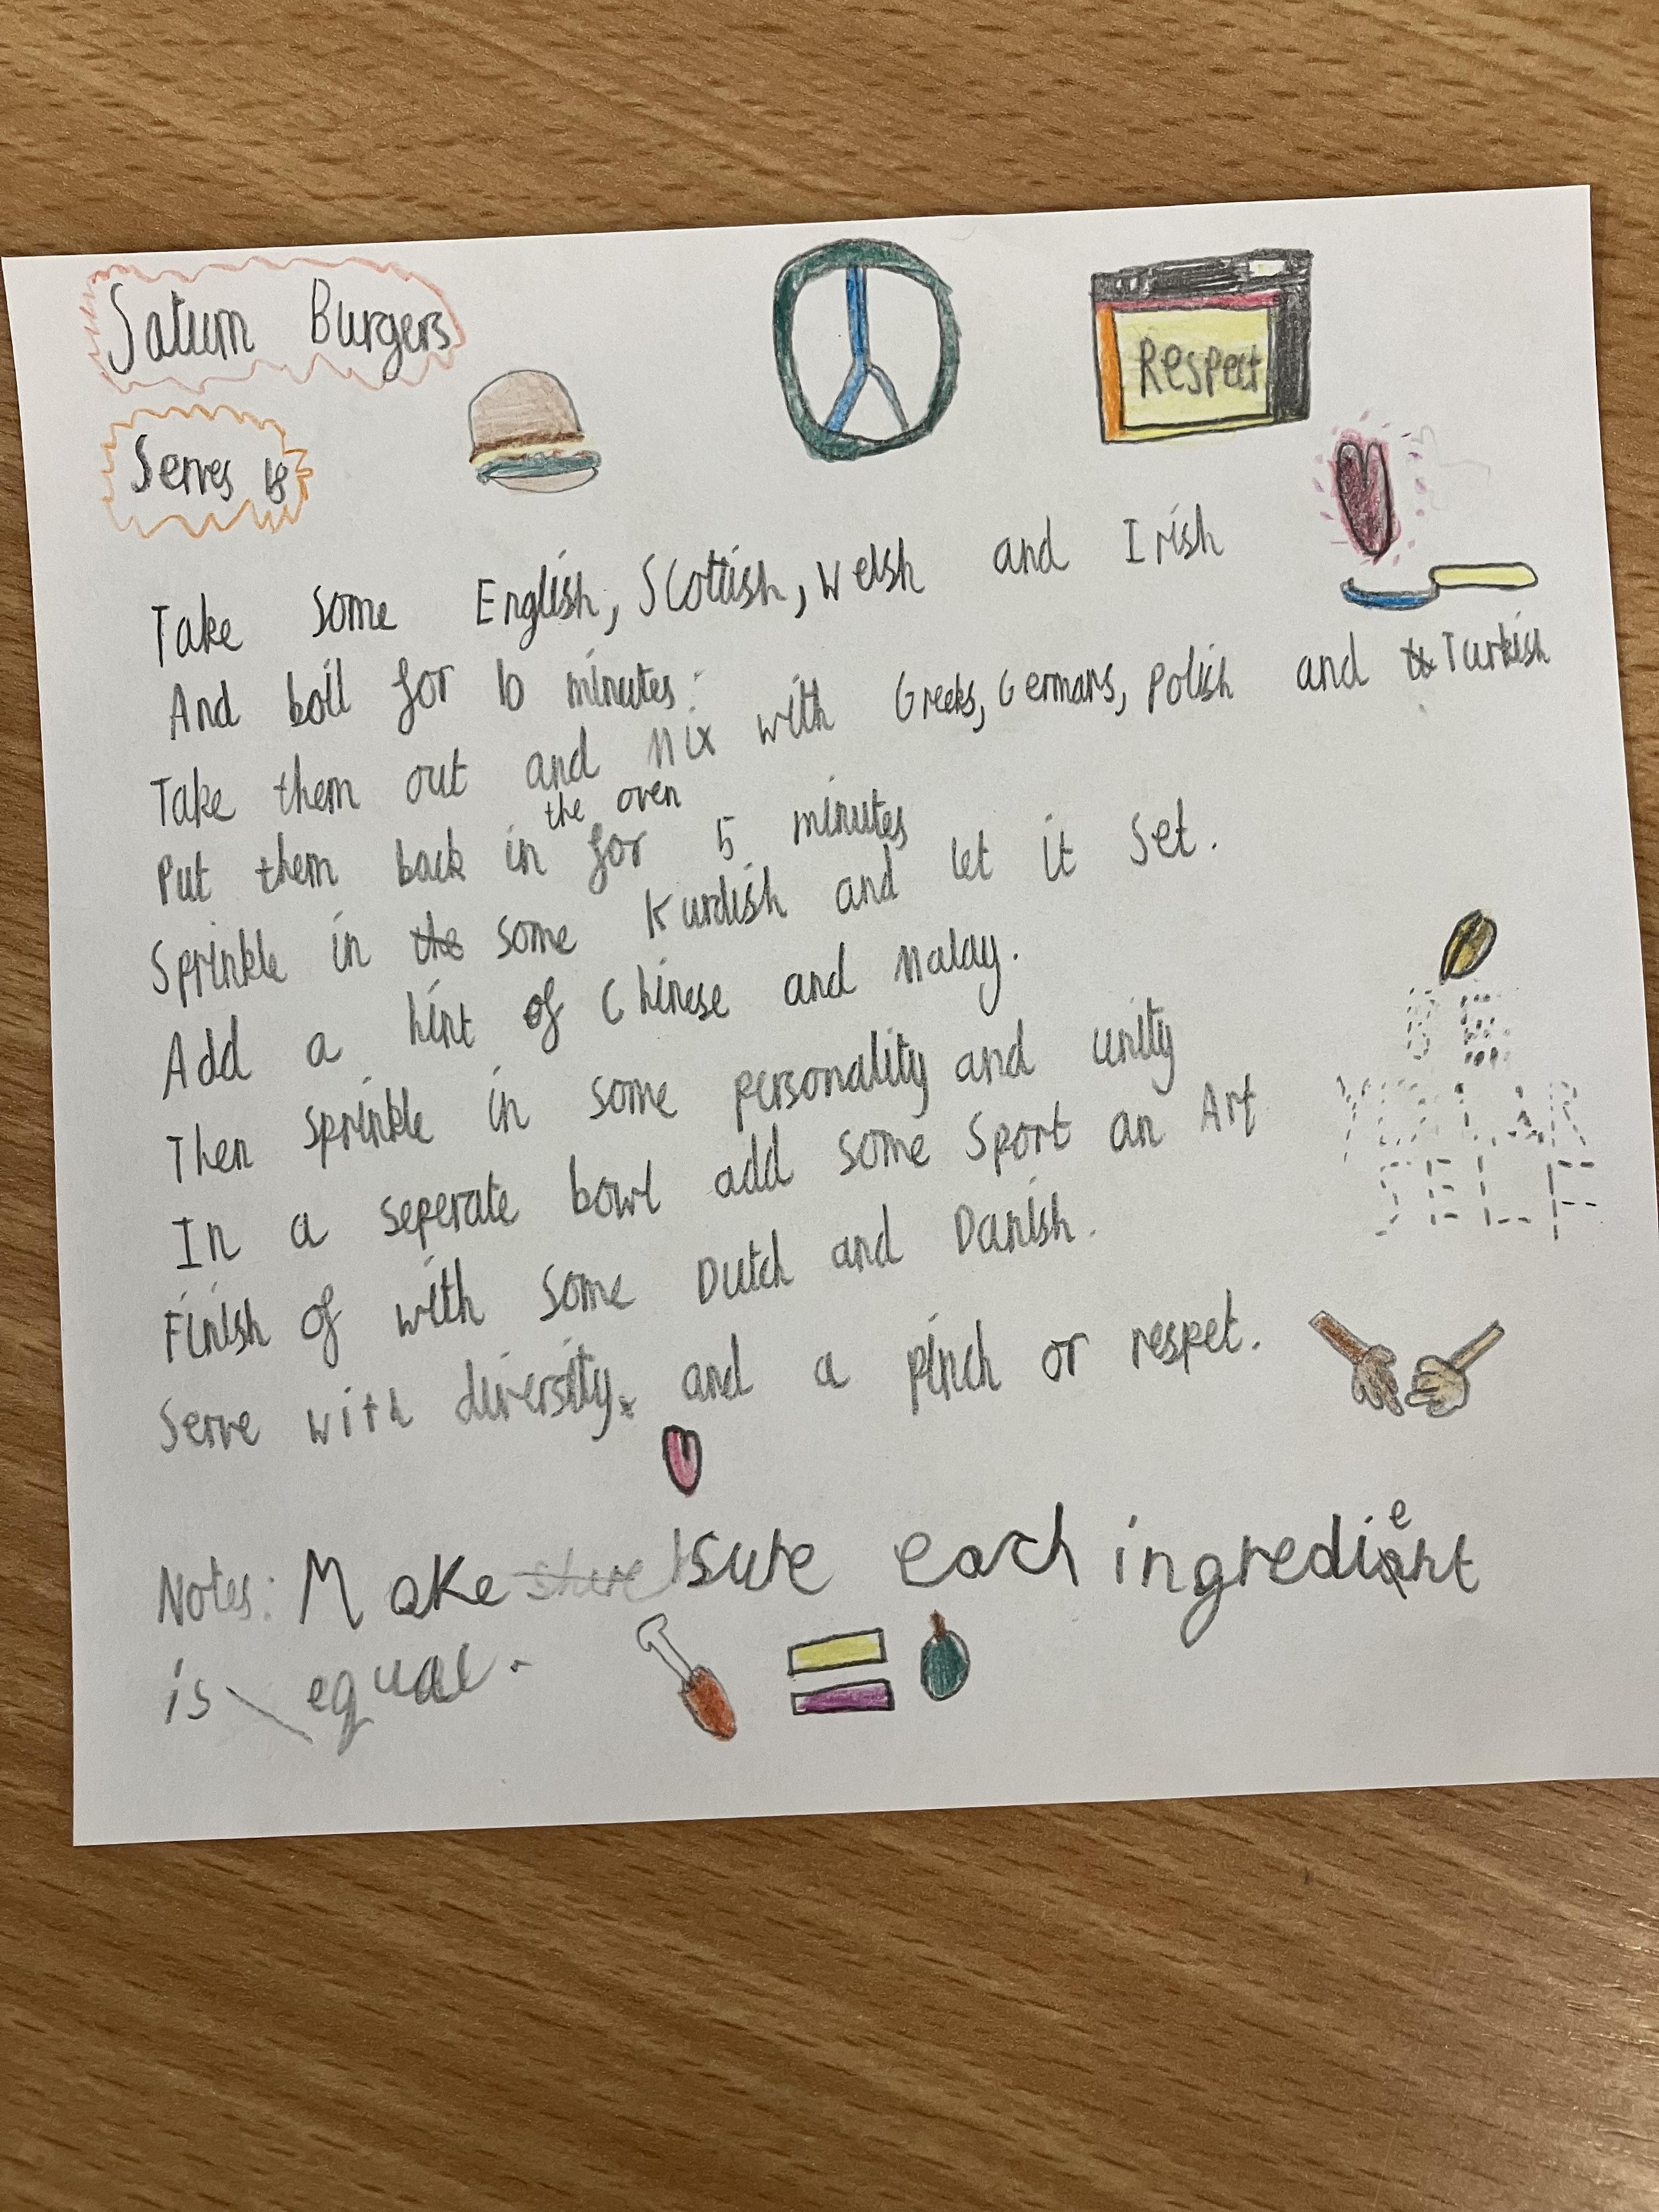 Saturn Burgers
Respect
Serves 18
Take some English, Scottish, Welsh and Irish
And boil for 10 minutes.
Take them out and Mix with Greeks, Germans, Polish and Turkish
Put them back in the oven for 5 minutes
Sprinkle in the some Kurdish and let it set.
Add a hint of Chinese and Malay.
Then sprinkle in some personality and unity
In a seperate bowl add some Sport an Art
Finish of with some Dutch and Danish.
Serve with diversity and a pinch or respet.
BE
YOUR
SELF
Notes: Make sure each ingredient
is equal.